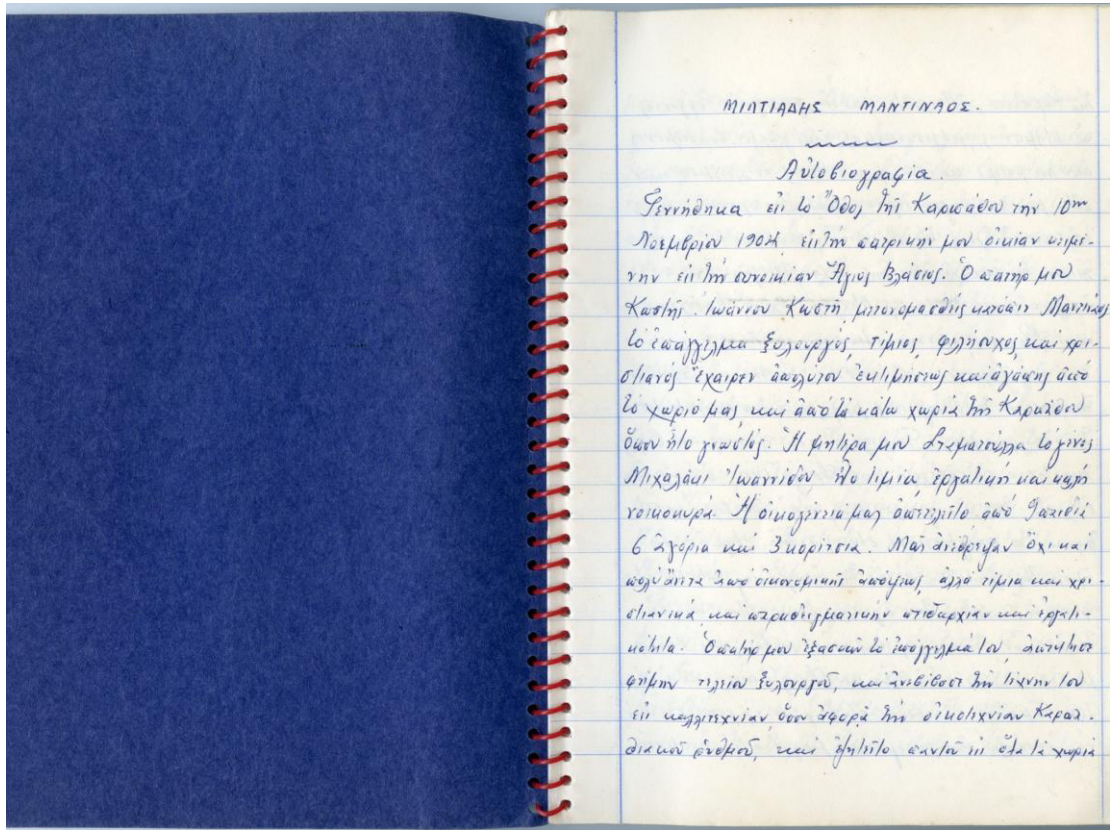 ΜΙΛΤΙΑΔΗΣ ΜΑΝΤΙΝΑΟΣ.
Αὐτοβιογραφία
Γεννήθηκα εἰς τὸ Ὄθος τῆς Καρπάθου τὴν 10ην
Νοεμβρίου 1904 εἰς τὴν πατρικήν μου οἰκίαν κειμέ-
νην εἰς τὴν συνοικίαν Ἅγιος Βλάσιος. Ὁ πατήρ μου
Κωστῆς Ἰωάννου Κωστῆ μετονομασθῆς κατόπιν Μαντινάος
τὸ ἐπάγγελμα ξυλουργός, τίμιος, φιλήσυχος, καὶ χρι-
στιανός ἔχαιρεν ἀπολύτου ἐκτιμήσεως καὶ ἀγάπης ἀπό
τὸ χωριό μας, καὶ ἀπό τὰ κάτω χωριά τῆς Καρπάθου
ὅπου ἦτο γνωστός. Ἡ μητέρα μου Σταματούλλα τὸ γένος
Μιχαλάκι Ἰωαννίδου ἦτο τιμία, ἐργατική καὶ καλή
νοικοκυρά. Ἡ οἰκογένειά μας ἀπετελεῖτο ἀπό 9 παιδιά
6 ἀγόρια καὶ 3 κορίτσια. Μᾶς ἀνέθρεψαν ὄχι καὶ
πολύ ἄνετα ἀπό οἰκονομικῆς ἀπόψεως, ἀλλά τίμια καὶ χρι-
στιανικά, καὶ παραδειγματικήν πειθαρχίαν καὶ ἐργατι-
κότητα. Ὁ πατήρ μου ἐξασκῶν τὸ ἐπάγγελμά του, ἀπέκτησε
φήμην τελείου ξυλουργοῦ, καὶ ἀνεβίβασε τὴν τέχνην του
εἰς καλλιτεχνίαν, ὅσον ἀφορᾶ τὴν οἰκοτεχνίαν Καρπα-
θιακοῦ ρυθμοῦ, καὶ ἐζητεῖτο παντοῦ εἰς ὅλα τὰ χωριά